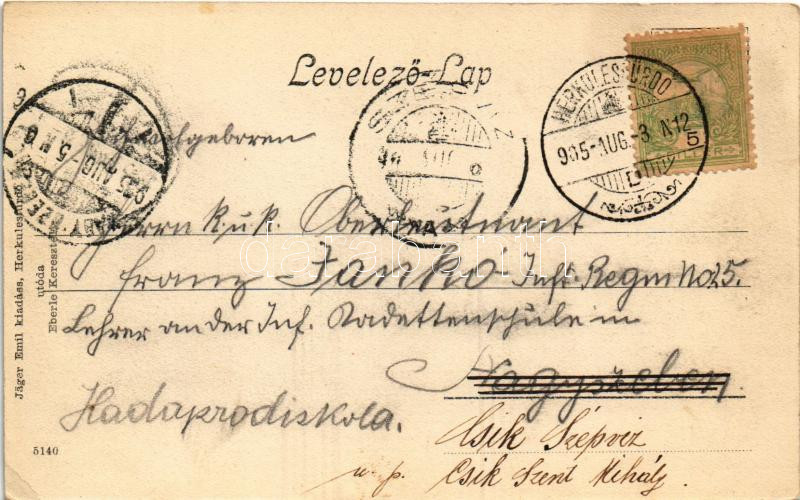 Levelező-Lap
MAGYAR KIR. POSTA
5
HERKULESFÜRDŐ
905-AUG.-3 N12
D
905 AUG-5 N
Herrn k.u.k. Oberleutnant
Franz Janko Inf. Regm No 25.
Lehrer an der Inf. Kadettenschule in
Nagyszeben.
Hadaprodiskola.
Csik Szépviz
u. p. Csik Szent Mihály.
Jäger Emil kiadása, Herkulesfürdő
utóda
Eberle Keresztély
5140